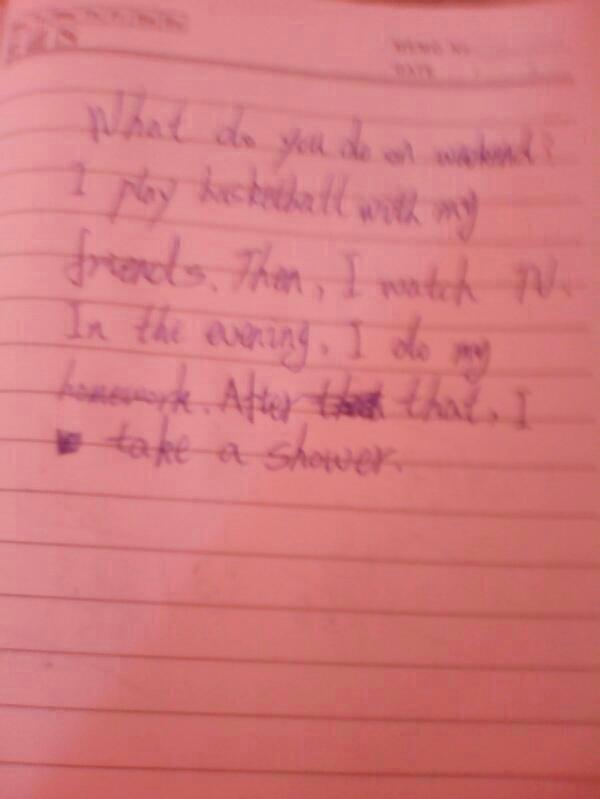 What do you do on weekend?
I play basketball with my
friends. Then, I watch TV.
In the evening, I do my
homework. After that, I
take a shower.